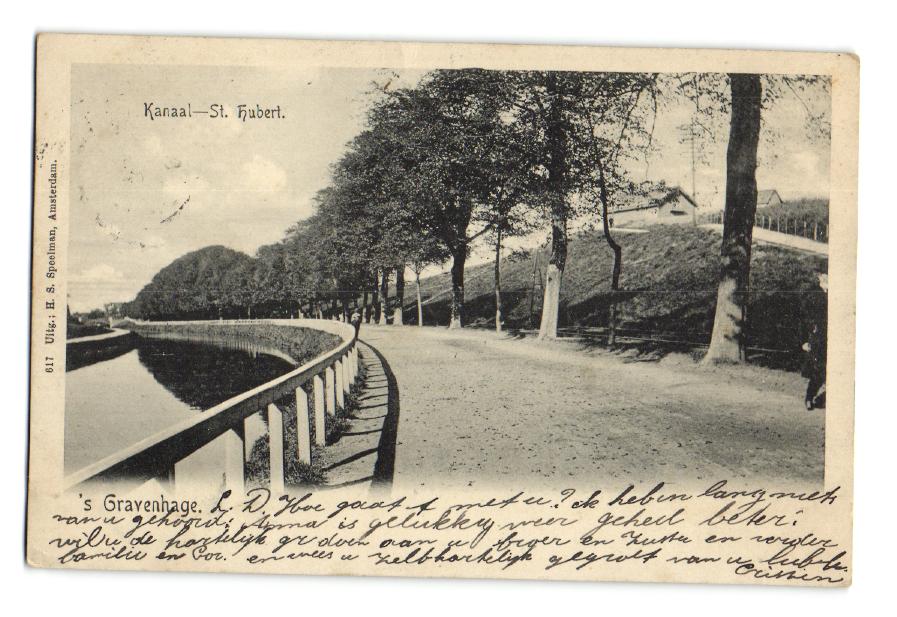 Kanaal—St. Hubert.
617 Uitg.; H. S. Speelman, Amsterdam.
's Gravenhage. L. D. Hoe gaat met u? Ik heb lang niets
van u gehoord. Anna is gelukkig weer geheel beter.
wil u de hartelijk gr doen aan u broer en Zuster en verder
familie en Cor. en wees u zelf hartelijk gegroet van u liefh.